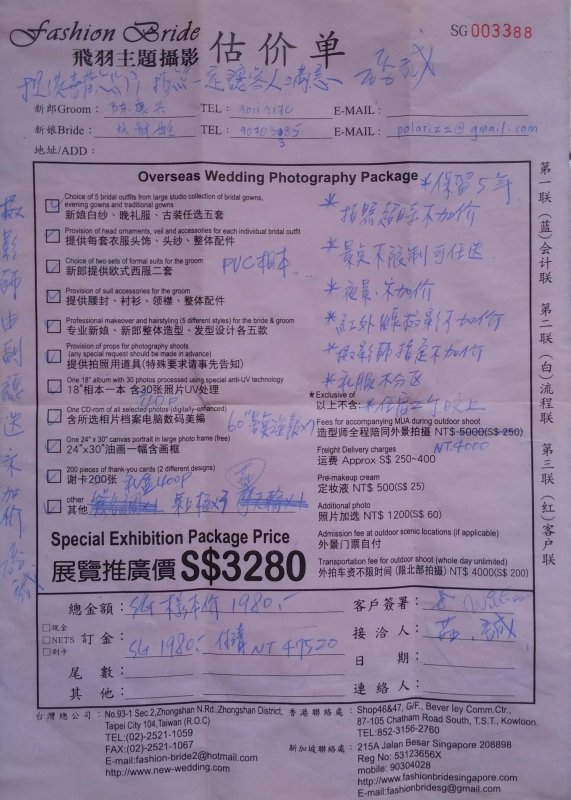 Fashion Bride
飛羽主題攝影
估价单
SG 003388
一定讓客人滿意
新郎Groom:
TEL:
E-MAIL:
新娘Bride:
TEL:
E-MAIL: polarizz@gmail.com
地址/ADD:
Overseas Wedding Photography Package
*保留5年
Choice of 5 bridal outfits from large studio collection of bridal gowns,
evening gowns and traditional gowns
新娘白纱、晚礼服、古装任选五套
*拍照超時不加价
Provision of head ornaments, veil and accessories for each individual bridal outfit
提供每套衣服头饰、头纱、整体配件
*景点不限制可任选
Choice of two sets of formal suits for the groom
新郎提供欧式西服二套
PVC相本
*夜景.不加价
Provision of suit accessories for the groom
提供腰封、衬衫、领襟、整体配件
*紅外線攝影不加价
Professional makeover and hairstyling (5 different styles) for the bride & groom
专业新娘、新郎整体造型、发型设计各五款
*攝影師指定不加价
Provision of props for photography shoots
(any special request should be made in advance)
提供拍照用道具(特殊要求请事先告知)
*礼服不分区
One 18" album with 30 photos processed using special anti-UV technology
18"相本一本 含30张照片UV处理
One CD-rom of all selected photos (digitally-enhanced)
含所选相片档案电脑数码美编
One 24" x 30" canvas portrait in large photo frame (free)
24"x30"油画一幅含画框
60"
200 pieces of thank-you cards (2 different designs)
谢卡200张
礼盒400P
other
其他
*Exclusive of
以上不含:
Fees for accompanying MUA during outdoor shoot
造型师全程陪同外景拍摄 NT$ 5000(S$ 250)
NT.4000
Freight Delivery charges
运费 Approx S$ 250~400
Pre-makeup cream
定妆液 NT$ 500(S$ 25)
Additional photo
照片加选 NT$ 1200(S$ 60)
Admission fee at outdoor scenic locations (if applicable)
外景门票自付
Transportation fee for outdoor shoot (whole day unlimited)
外拍车资不限时间 (限北部拍摄) NT$ 4000(S$ 200)
Special Exhibition Package Price
展覽推廣價 S$3280
總金額: SG 樣本价 1980.-
客戶簽署:
現金
NETS
刷卡
訂金: SG 1980.- NT 47520
接洽人:
尾數:
日期:
其他:
連絡人:
台灣總公司: No.93-1 Sec.2,Zhongshan N.Rd.,Zhongshan District,
Taipei City 104,Taiwan (R.O.C)
TEL:(02)-2521-1059
FAX:(02)-2521-1067
E-mail:fashion-bride2@hotmail.com
http://www.new-wedding.com
香港聯絡處: Shop46&47, G/F., Bever ley Comm.Ctr.,
87-105 Chatham Road South, T.S.T., Kowloon.
TEL:852-3156-2760
新加坡聯絡處: 215A Jalan Besar Singapore 208898
Reg No: 53123656X
mobile: 90304028
http://www.fashionbridesingapore.com
E-mail:fashionbridesg@gmail.com
第一联(蓝)会计联 第二联(白)流程联 第三联(红)客户联
攝影師由副總選不加价